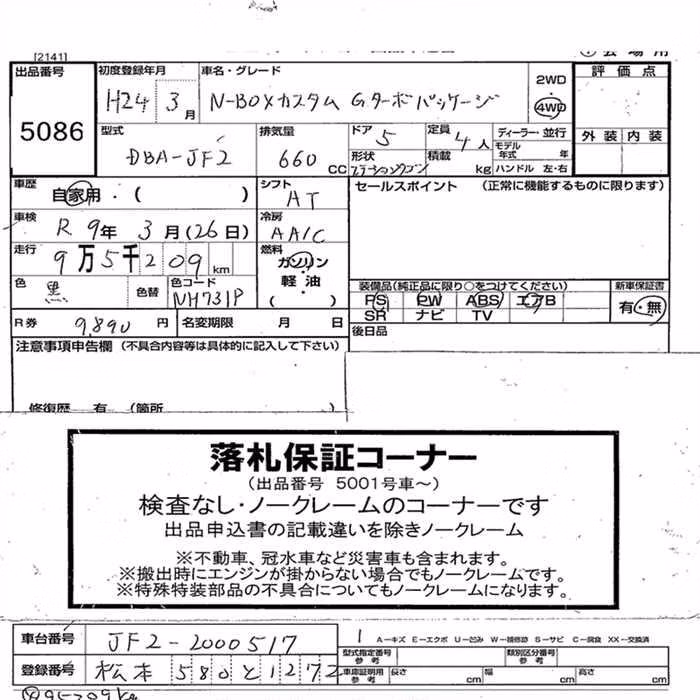 [2141]
出品番号 5086
初度登録年月 H24 3月
車名・グレード N-BOXカスタム Gターボパッケージ
2WD 4WD
評価点
外装 内装
型式 DBA-JF2
排気量 660 CC
ドア 5
定員 4人
ディーラー・並行
形状 ステーションワゴン
積載 kg
モデル年式 年
ハンドル 左・右
車歴 自家用・( )
シフト AT
セールスポイント (正常に機能するものに限ります)
車検 R 9年 3月(26日)
冷房 AAIC
走行 9万5千209km
燃料 ガソリン 軽油 ( )
色 黒 色替
色コード NH731P
装備品(純正品に限り○をつけてください)
PS PW ABS エアB
SR ナビ TV
新車保証書 有・無
R券 9,890円
名変期限 月 日
後日品
注意事項申告欄 (不具合内容等は具体的に記入して下さい)
修復歴 有 (箇所 )
落札保証コーナー
(出品番号 5001号車~)
検査なし・ノークレームのコーナーです
出品申込書の記載違いを除きノークレーム
※不動車、冠水車など災害車も含まれます。
※搬出時にエンジンが掛からない場合でもノークレームです。
※特殊特装部品の不具合についてもノークレームになります。
車台番号 JF2-2000517
1 A-キズ E-エクボ U-凹み W-補修跡 S-サビ C-腐食 XX-交換済
型式指定番号 参考
類別区分番号 参考
登録番号 松本 580と1272
車庫証明用 参考 長さ cm 幅 cm 高さ cm